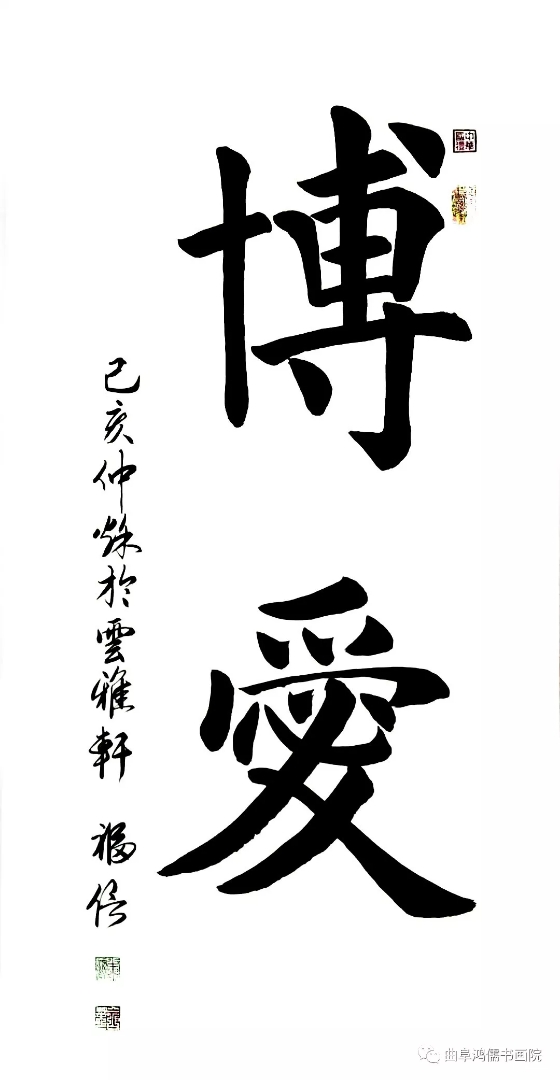 博愛
己亥仲秌於雲雅軒 福信
曲阜鸿儒书画院